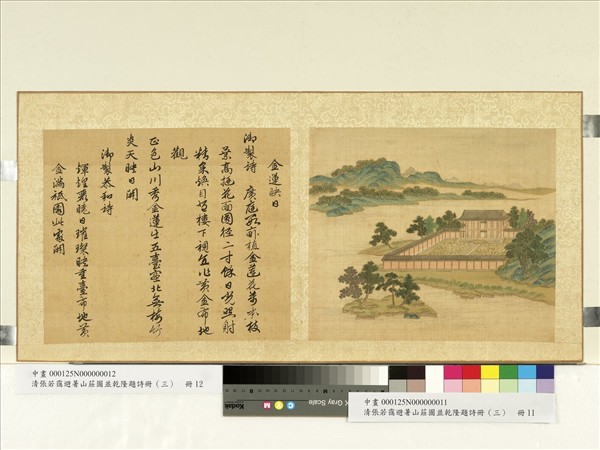 金蓮映日
御製詩 廣庭數畝植金蓮花萬本枝
葉高挺花面圓徑二寸餘日光照射
精采煥目登樓下視直作黃金布地
觀
正色山川秀金蓮出五臺塞北無梅竹
炎天映日開
御製恭和詩
輝煌麗曉日璀璨映重臺布地黃
金滿祗園此處開
中畫 000125N000000012
清張若靄避暑山莊圖並乾隆題詩冊（三） 冊12
Kodak
Gray Scale
中畫 000125N000000011
清張若靄避暑山莊圖並乾隆題詩冊（三） 冊11